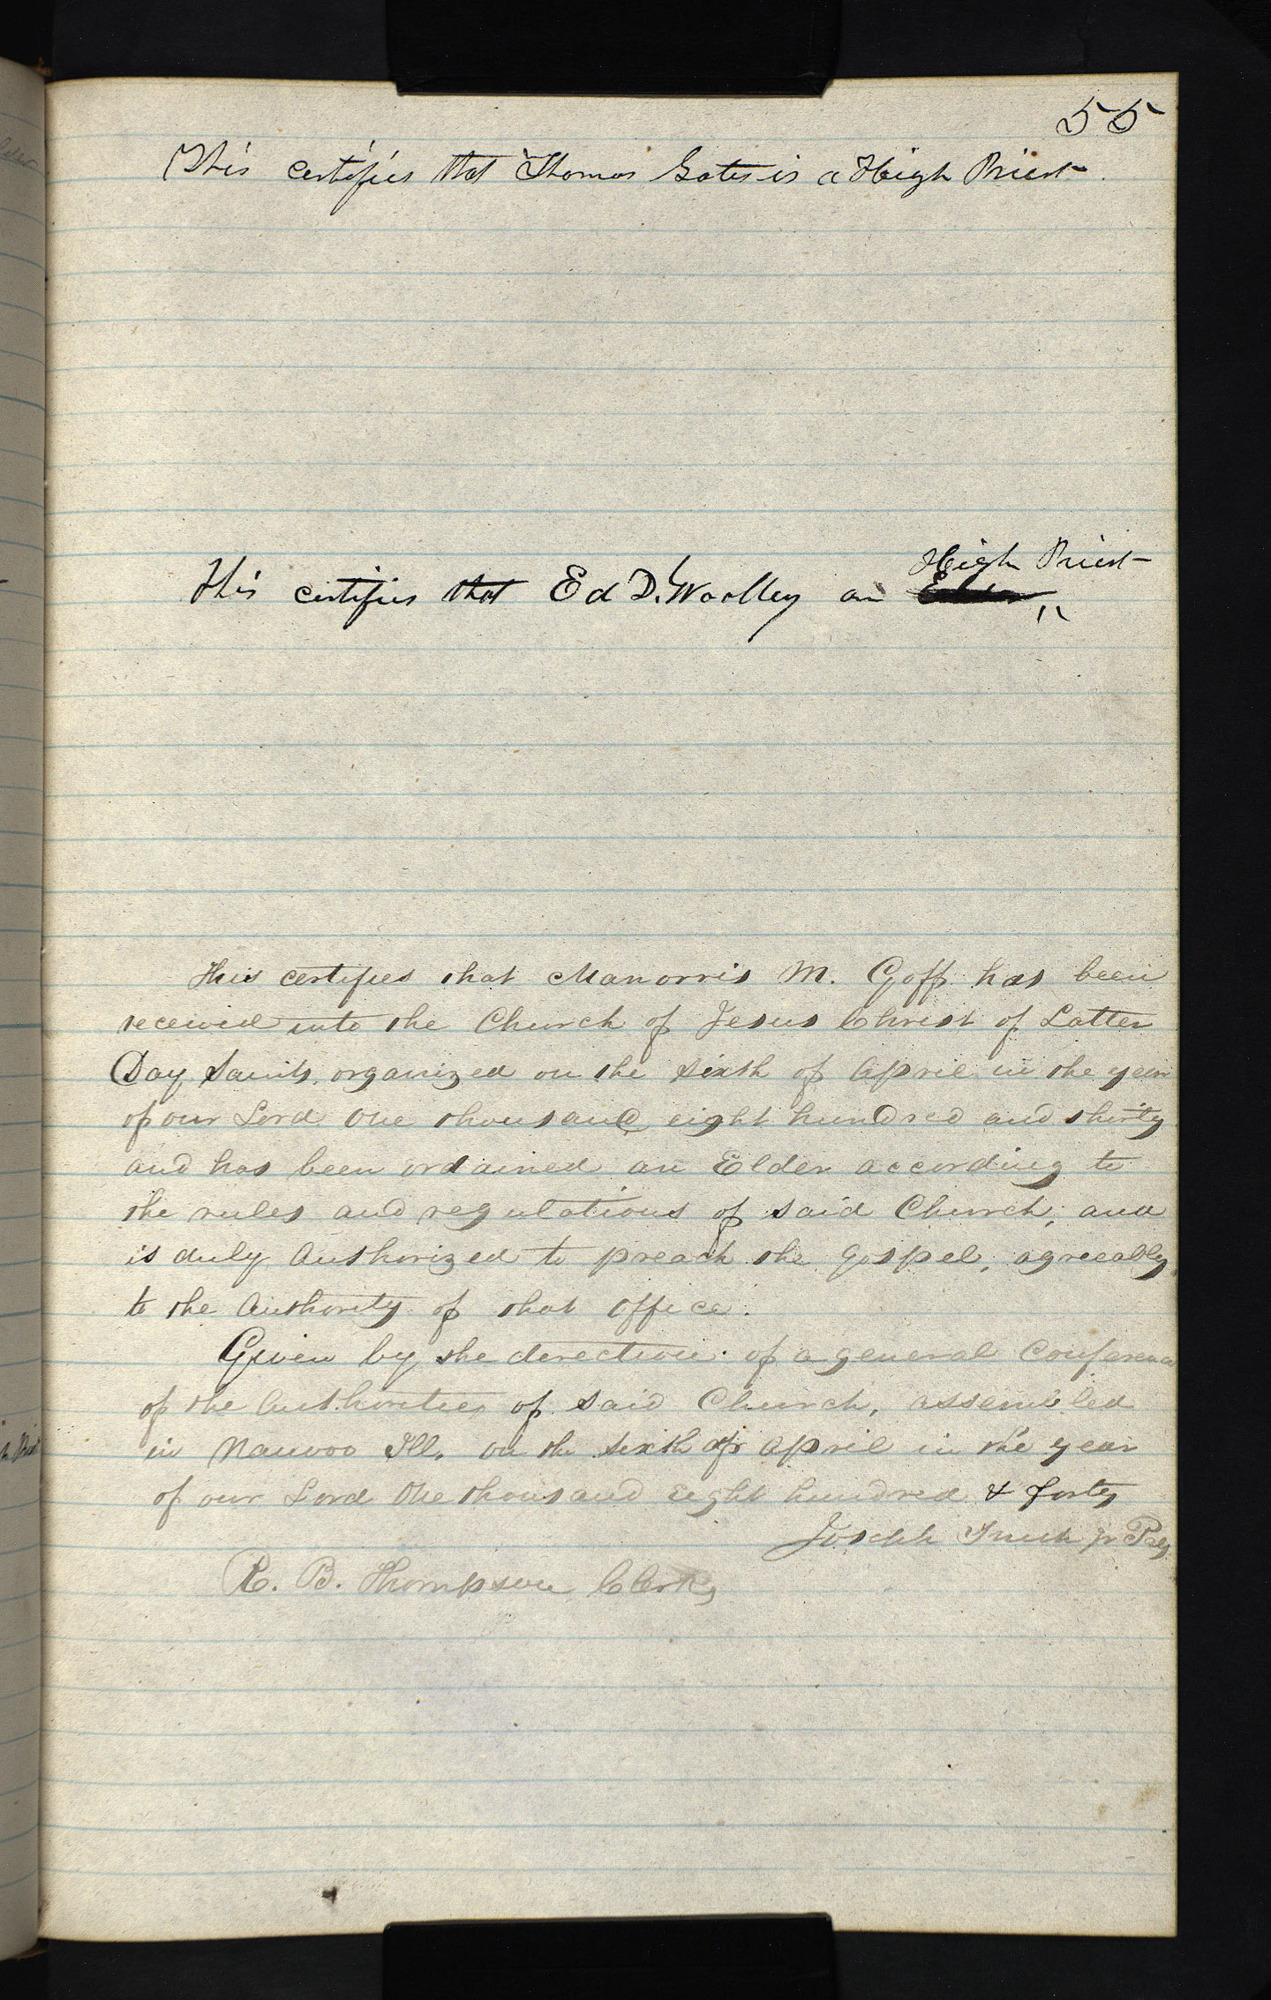 55
This certifies that Thomas Gates is a High Priest
High Priest
This certifies that Ed D. Woolley an Elder "
This certifies that Manorris M. Goff has been
received into the Church of Jesus Christ of Latter
Day Saints. organized on the sixth of April in the year
of our Lord One thousand eight hundred and thirty
and has been ordained an Elder according to
the rules and regulations of said Church, and
is duly Authorized to preach the Gospel, agreeably
to the Authority of that Office.
Given by the direction of a general Conference
of the Authorities of said Church, assembled
in Nauvoo Ill. on the sixth of April in the year
of our Lord One thousand eight hundred & forty
Joseph Smith jr Pres
R. B. Thompson Clerk,